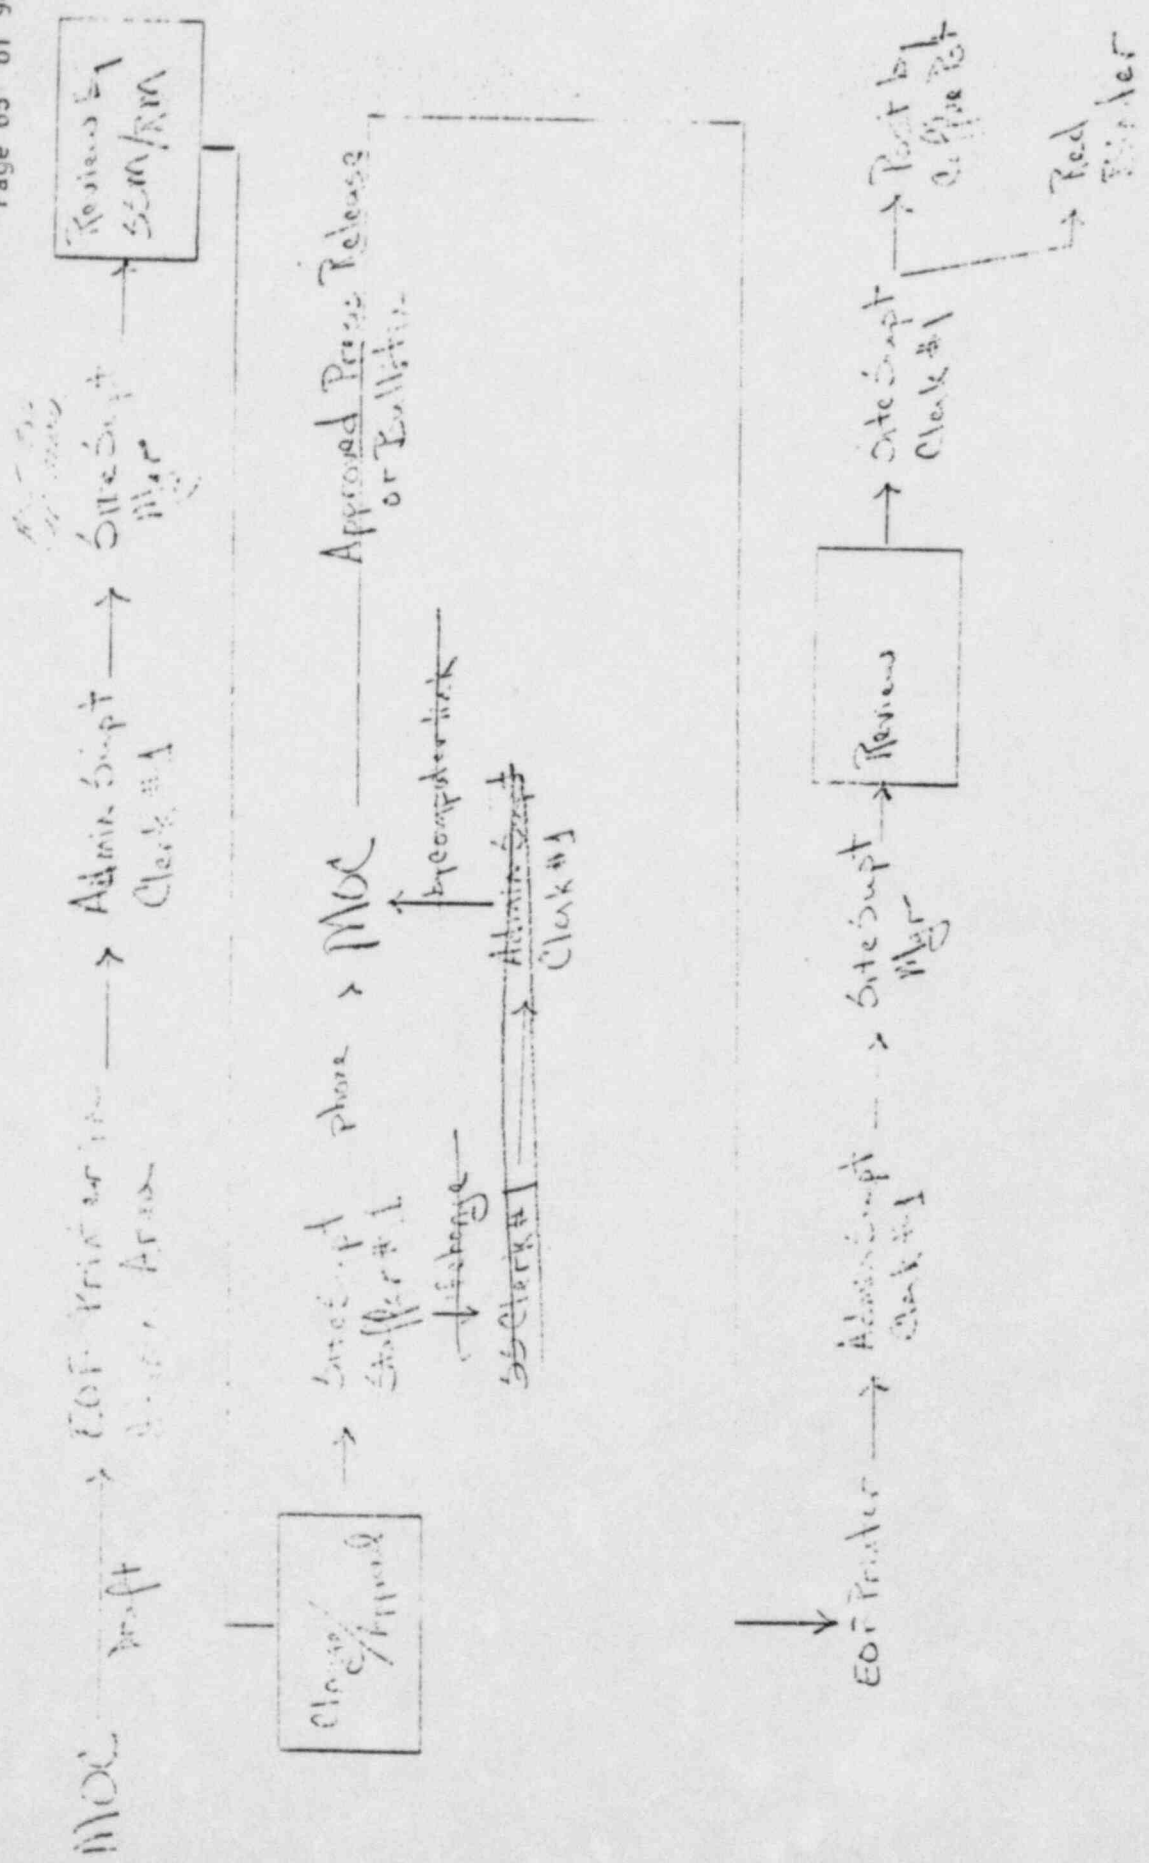 Page 65 of 9
MOC
Draft
EOF Printer in
Area
Admin Supt
Clerk #1
Site Supt
Mgr
Review by
SSM/RM
Change/
Approval
Site Supt
Staffer #1
phone
MOC
Approved Press Release
or Bulletin
If change
by computer link
SS Clerk #1
Admin Supt
Clerk #1
EOF Printer
Admin Supt
Clerk #1
Site Supt
Mgr
Review
Site Supt
Clerk #1
Post by
Coffee Pot
Red
Binder